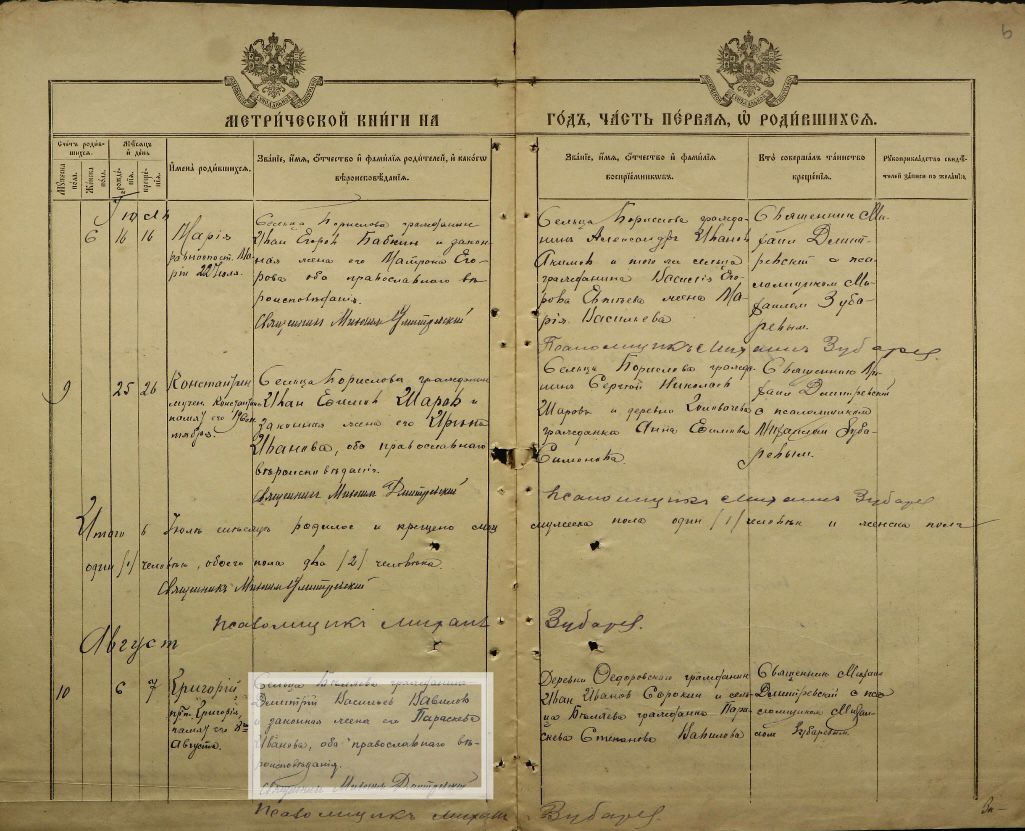 6
МЕТРИЧЕСКОЙ КНИГИ НА ГОДЪ, ЧАСТЬ ПЕРВАЯ, Ѡ РОДИВШИХСЯ.
Счетъ родившихся.
Мужеска пола.
Женска пола.
Мѣсяцъ и день
рожденія.
крещенія.
Имена родившихся.
Званіе, имя, отчество и фамилія родителей, и какогѡ вѣроисповѣданія.
Званіе, имя, отчество и фамилія воспріемниковъ.
Кто совершалъ таинство крещенія.
Рукоприкладство свидѣтелей записи по желанію.
Іюль
6 16 16
Марія
равноапост. Ма-
ріи 22 Іюля.
Сельца Борислова гражданин
Иван Егоров Бабкин и закон-
ная жена его Матрона Его-
рова оба православнаго вѣ-
роисповѣданія.
Священник Михаил Дмитревский
Сельца Борислова гражда-
нин Александр Иванов
Якимов и того же сельца
гражданина Василія Его-
рова жена Ма-
рія Васильева
Священник Ми-
хаил Дмит-
ревский с пса-
ломщиком Ми-
хаилом Зуба-
ревым.
Псаломщикъ Михаилъ Зубарев.
9 25 26
Константин
мучен. Константина
память его
Сельца Борислова гражданин
Иван Ефимов Шаров и
законная жена его Ирина
Иванова, оба православнаго
вѣроисповѣданія.
Священникъ Михаилъ Дмитревский
Сельца Борислова гражда-
нин Сергей Николаев
Шаров и деревни
гражданка Анна Ефимова
Симонова.
Священник Ми-
хаил Дмитревский
с псаломщиком
Михаилом Зуба-
ревым.
Псаломщикъ Михаилъ Зубарев
Итого в Іюлѣ мѣсяцѣ родилось и крещено мужеска пола один /1/ человѣк и женска пола
один /1/ человѣк, обоего пола два /2/ человѣка.
Священникъ Михаил Дмитревский
Псаломщикъ Михаил Зубарев.
Август
10 6 7
Григорій
прп. Григорія,
память его 8го
Августа.
Сельца Бѣляева гражданин
Дмитрій Васильев Вавилов
и законная жена его Параскева
Иванова, оба православнаго вѣ-
роисповѣданія.
Священник Михаил Дмитревский
Деревни Федоровского гражданин
Иван Иванов Сорокин и сель-
ца Бѣляева гражданка Пара-
скева Степанова Вавилова
Священник Михаил
Дмитревский с пса-
ломщиком Михаи-
лом Зубаревым.
Псаломщикъ Михаил Зубарев.